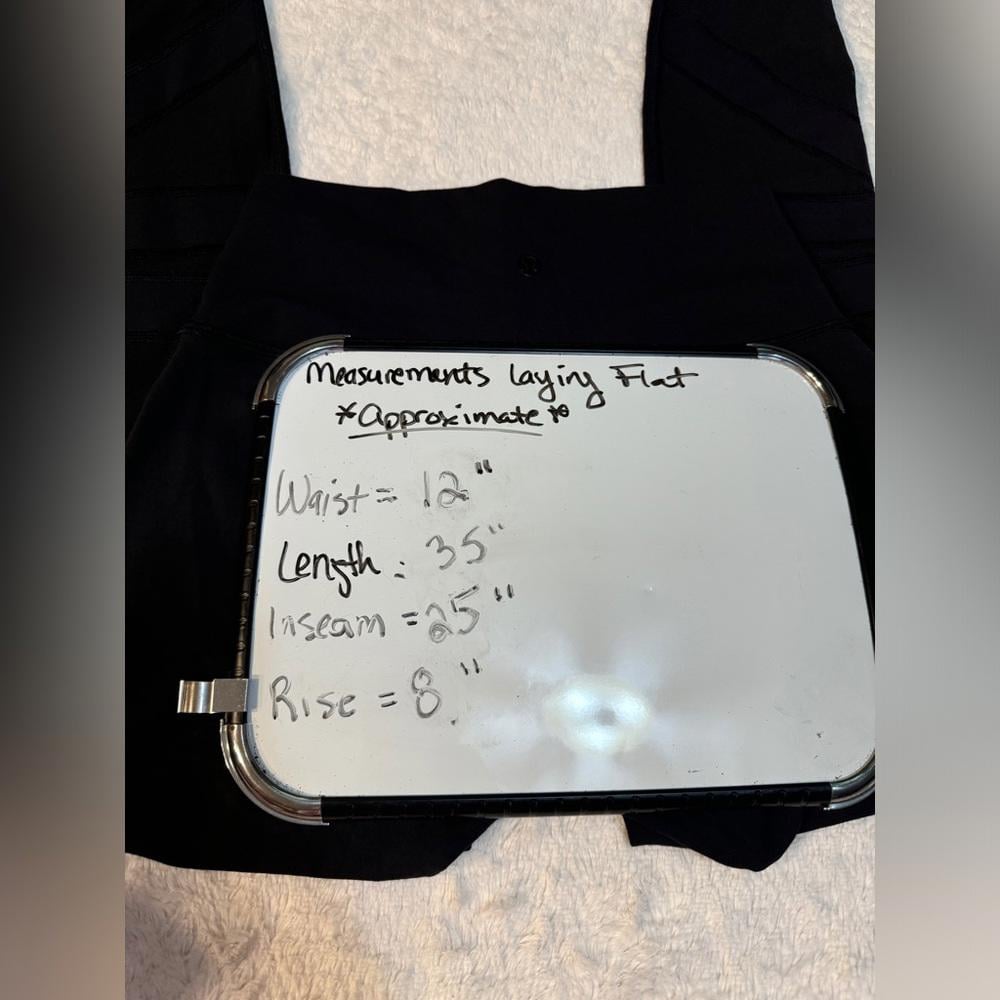 Measurements laying Flat
*Approximate*
Waist = 12"
Length: 35"
Inseam = 25"
Rise = 8"